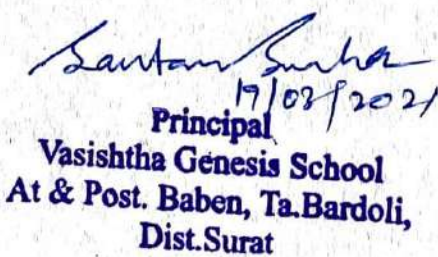 19/03/2021
Principal
Vasishtha Genesis School
At & Post. Baben, Ta.Bardoli,
Dist.Surat